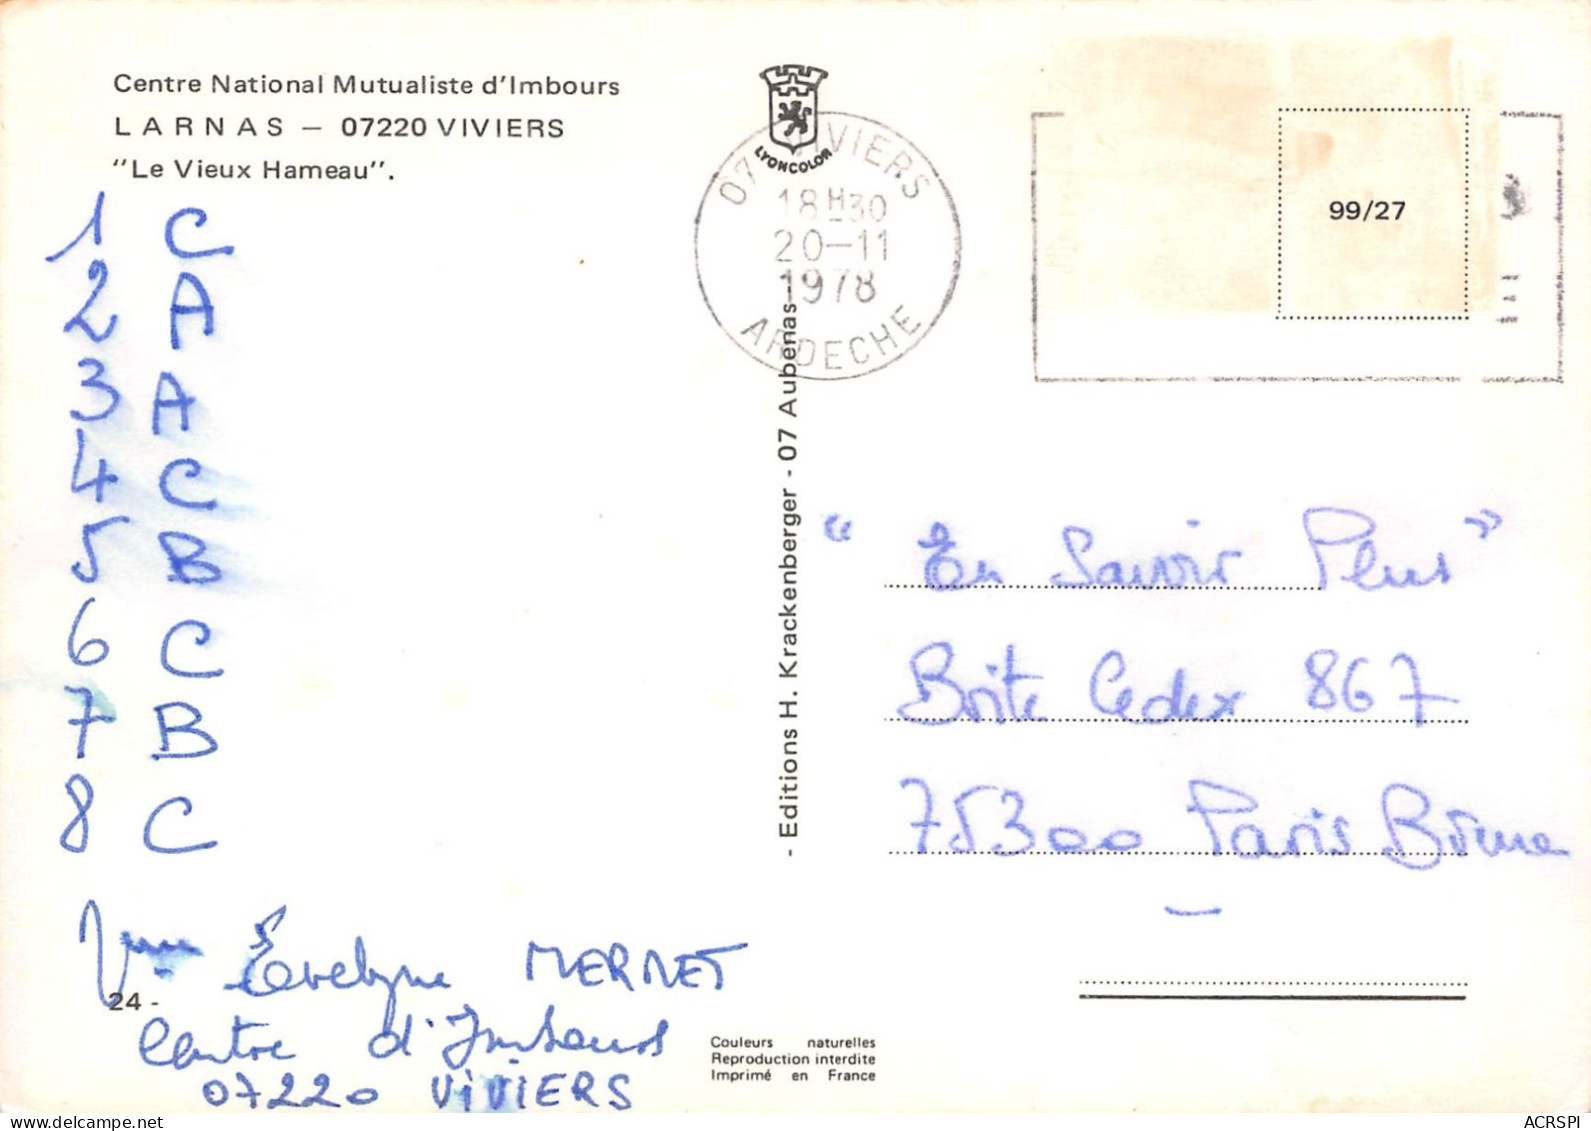 Centre National Mutualiste d'Imbours
LARNAS — 07220 VIVIERS
"Le Vieux Hameau".
1 C
2 A
3 A
4 C
5 B
6 C
7 B
8 C
Evelyne MERNET
24 -
Centre d'Imbours
07220 VIVIERS
LYONCOLOR
07 VIVIERS
18H30
20-11
1978
ARDECHE
- Editions H. Krackenberger - 07 Aubenas -
99/27
"En Savoir Plus"
Boite Cedex 867
75300 Paris Brune
Couleurs naturelles
Reproduction interdite
Imprimé en France
www.delcampe.net
ACRSPI